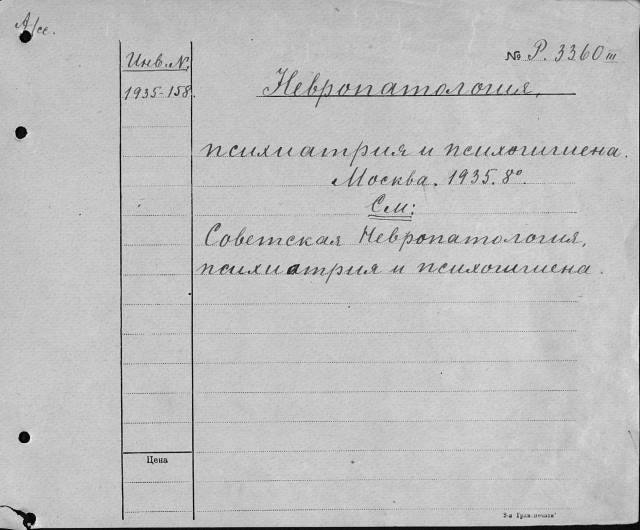 Инв. №.
№ Р. 3360 III
1935-158.
Невропатология,
психиатрия и психогигиена.
Москва. 1935. 8°.
См:
Советская Невропатология,
психиатрия и психогигиена.
Цена